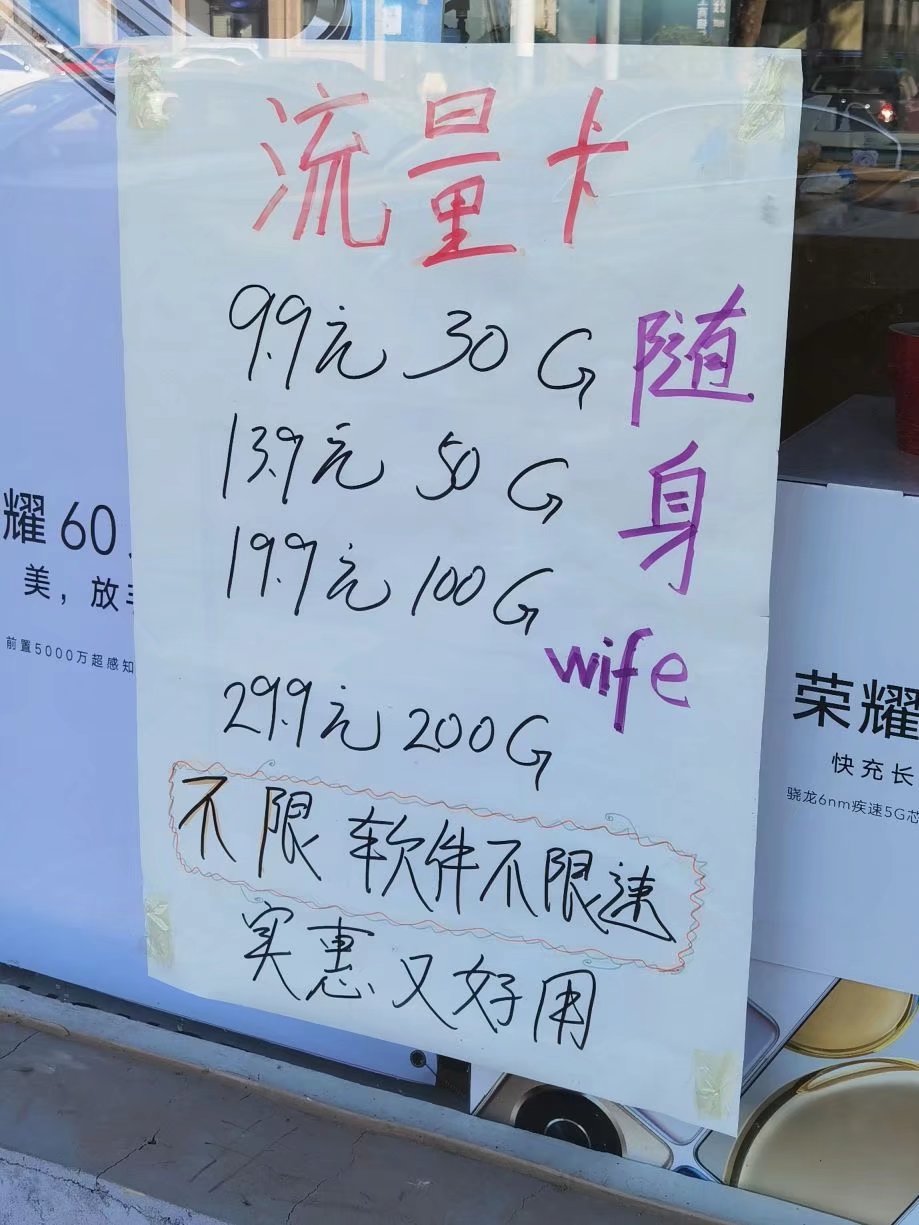 流量卡
9.9元 30G
13.9元 50G
19.9元 100G
29.9元 200G
随身
wife
不限软件不限速
实惠又好用
耀60
美，放
前置5000万超感知
荣耀
快充长
骁龙6nm疾速5G芯